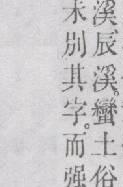 溪辰溪。蠻土俗
未別其字。而强